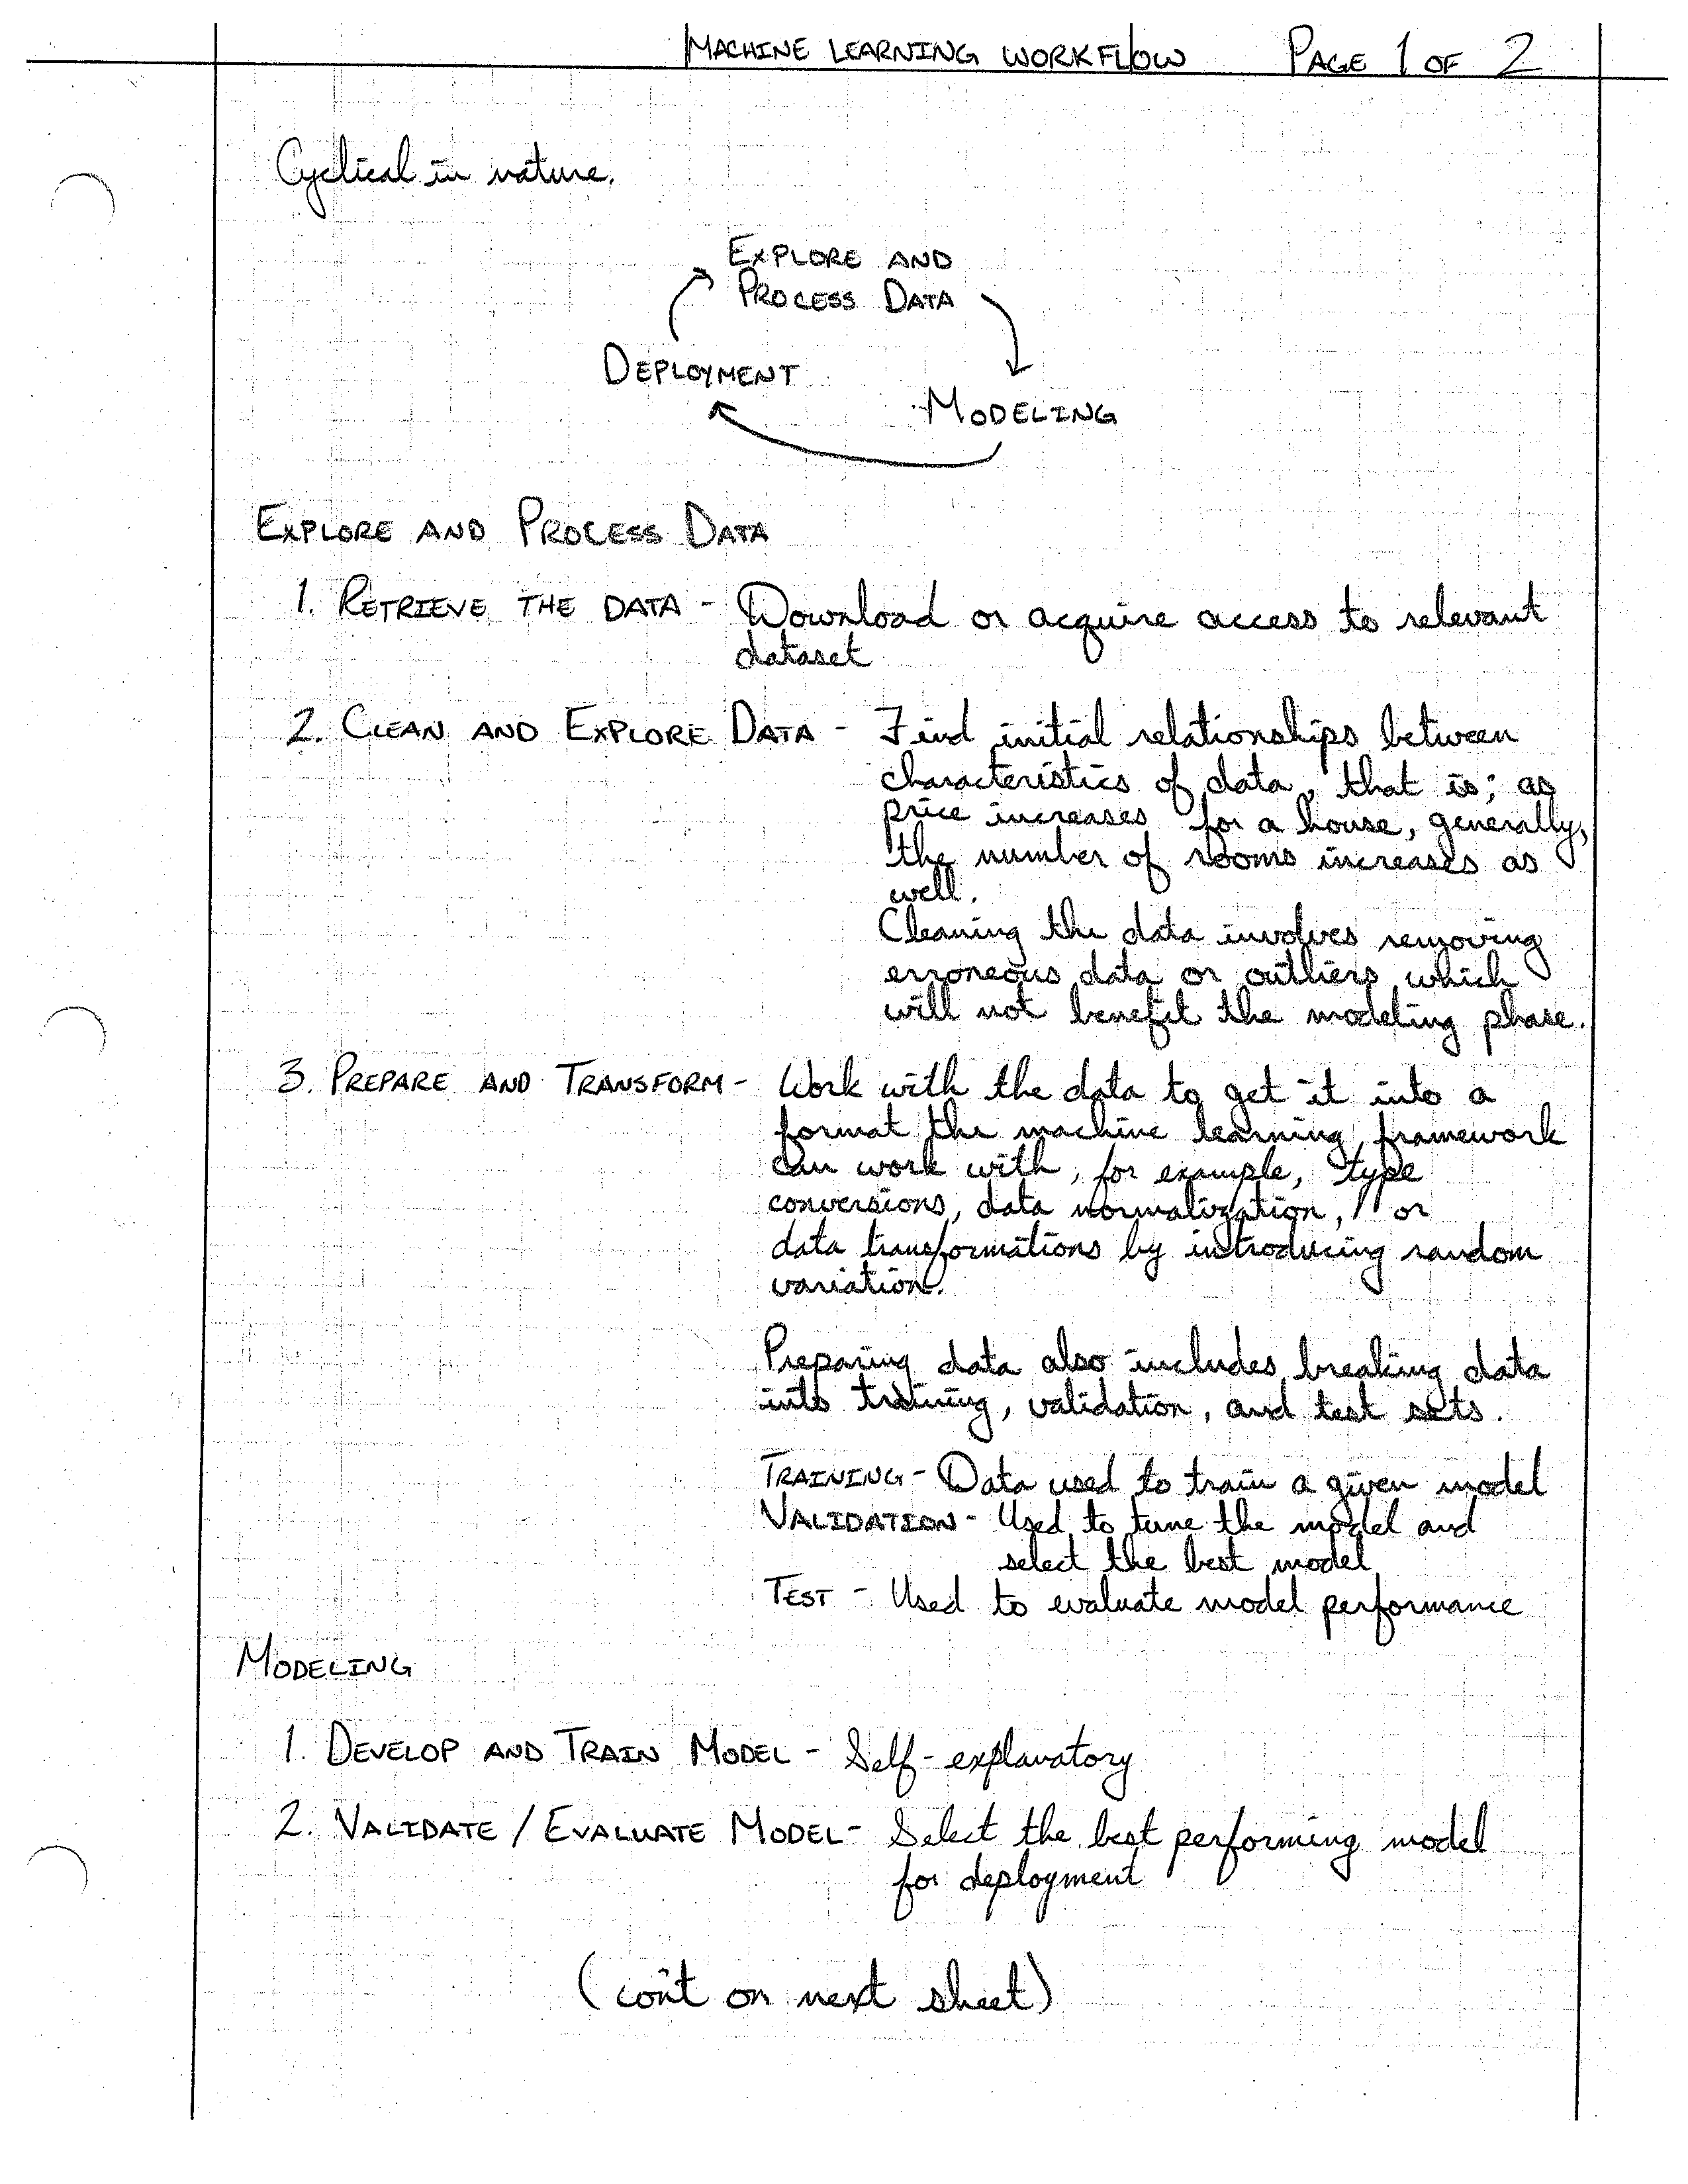 MACHINE LEARNING WORKFLOW PAGE 1 OF 2
Cyclical in nature.
EXPLORE AND
PROCESS DATA
DEPLOYMENT
MODELING
EXPLORE AND PROCESS DATA
1. RETRIEVE THE DATA - Download or acquire access to relevant
dataset
2. CLEAN AND EXPLORE DATA - Find initial relationships between
characteristics of data, that is; as
price increases for a house, generally,
the number of rooms increases as
well.
Cleaning the data involves removing
erroneous data or outliers which
will not benefit the modeling phase.
3. PREPARE AND TRANSFORM - Work with the data to get it into a
format the machine learning framework
can work with, for example, type
conversions, data normalization, or
data transformations by introducing random
variation.
Preparing data also includes breaking data
into training, validation, and test sets.
TRAINING - Data used to train a given model
VALIDATION - Used to tune the model and
select the best model
TEST - Used to evaluate model performance
MODELING
1. DEVELOP AND TRAIN MODEL - Self-explanatory
2. VALIDATE / EVALUATE MODEL - Select the best performing model
for deployment
(con't on next sheet)